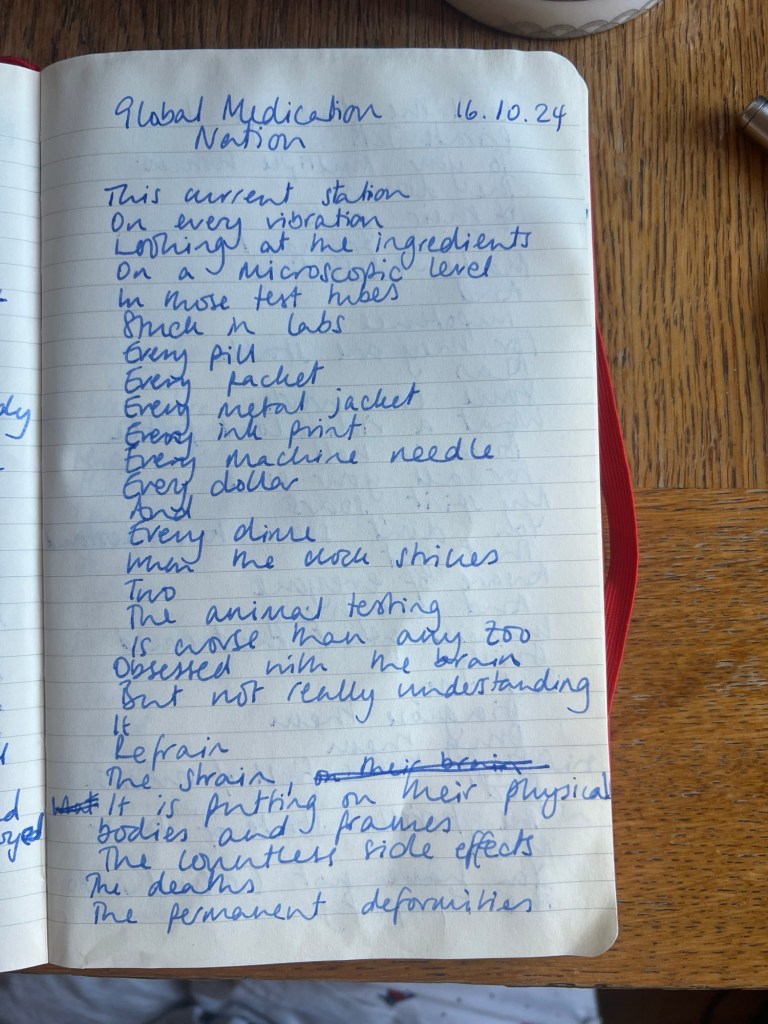 Global Medication 16.10.24
Nation
This current station
On every vibration
Looking at the ingredients
On a microscopic level
In those test tubes
Stuck in labs
Every pill
Every packet
Every metal jacket
Every ink print
Every machine needle
Every dollar
And
Every dime
When the clock strikes
Two
The animal testing
Is worse than any zoo
Obsessed with the brain
But not really understanding
It
Refrain
The strain, on their brain
It is putting on their physical
bodies and frames
The countless side effects
The deaths
The permanent deformities